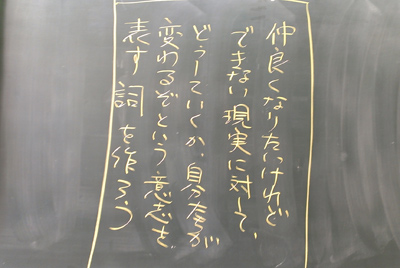 仲良くなりたいけれど
できない現実に対して、
どうしていくか、自分たちが
変わるぞという意志を
表す詞を作ろう